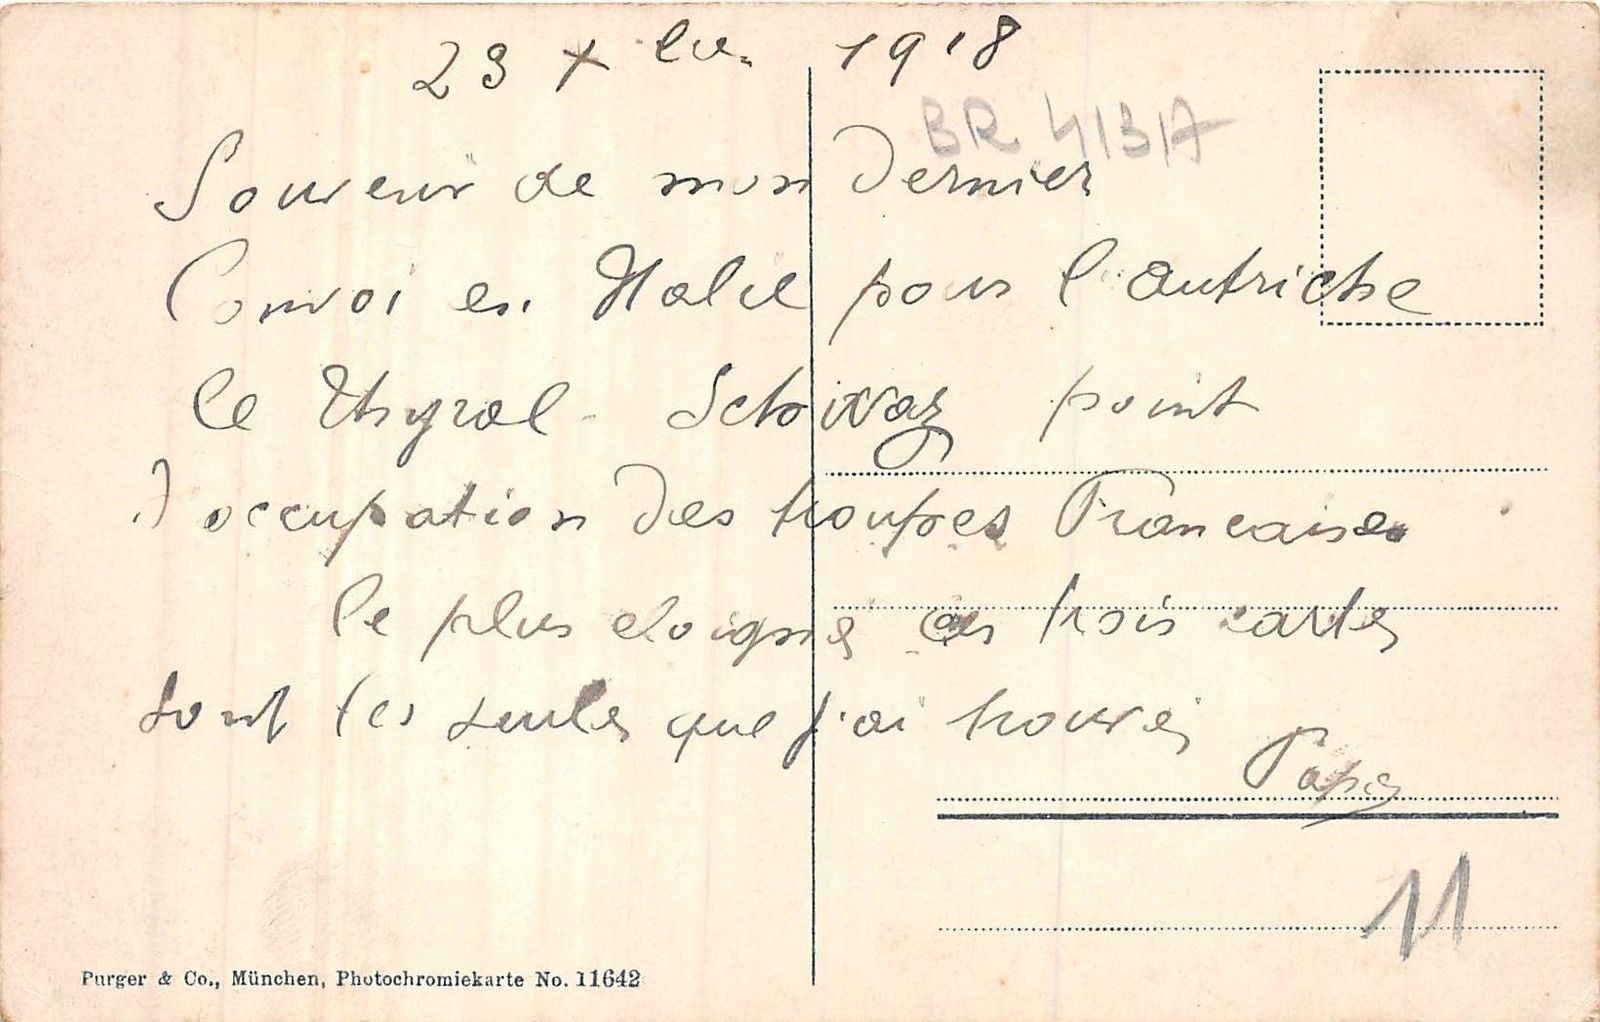 23 Xbre 1918
BR 413A
Souvenir de mon dernier
Convoi en Italie pour l'autriche
le Thyrol - Schwaz point
d'occupation des troupes Francaises
le plus eloigné ces trois cartes
sont les seules que j'ai trouvés
Papa
11
Purger & Co., München, Photochromiekarte No. 11642